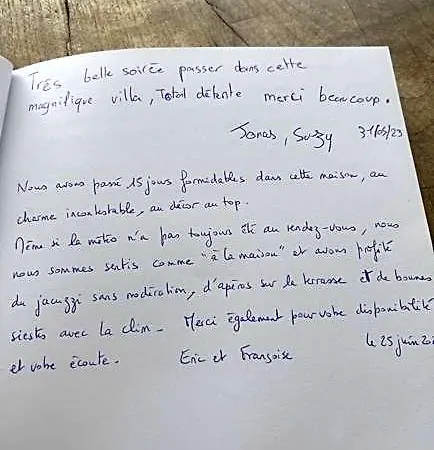 Très belle soirée passer dans cette
magnifique villa, Total détente merci beaucoup.
Jonas, Suzy 31/05/23
Nous avons passé 15 jours formidables dans cette maison, au
charme incontestable, au décor au top.
Même si la météo n'a pas toujours été au rendez-vous, nous
nous sommes sentis comme "à la maison" et avons profité
du jacuzzi sans modération, d'apéros sur la terrasse et de bonnes
siestes avec la clim - Merci également pour votre disponibilité
et votre écoute. Eric et Françoise le 25 juin